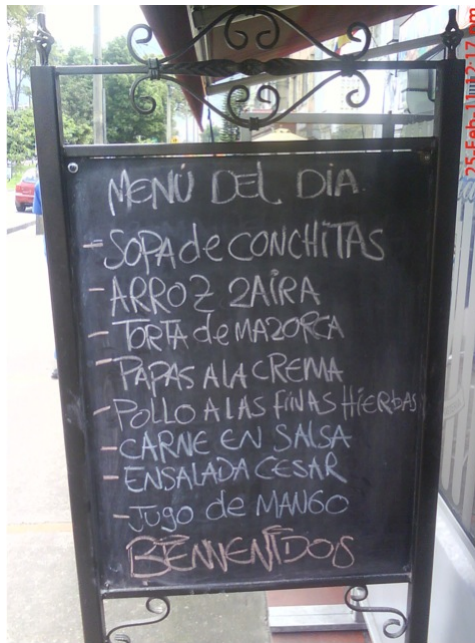 MENÚ DEL DIA
- SOPA de CONCHITAS
- ARROZ ZAIRA
- TORTA de MAZORCA
- PAPAS A LA CREMA
- POLLO A LAS FINAS HIERBAS
- CARNE EN SALSA
- ENSALADA CESAR
- Jugo de MANGO
BIENVENIDOS